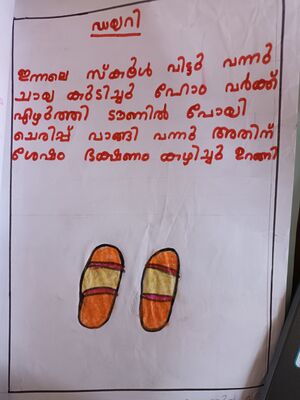 ഡയറി
ഇന്നലെ സ്കൂൾ വിട്ടു വന്നു
ചായ കുടിച്ചു ഹോം വർക്ക്
എഴുത്തി ടൗണിൽ പോയി
ചെരിപ്പ് വാങ്ങി വന്നു അതിന്
ശേഷം ഭക്ഷണം കഴിച്ചു ഉറങ്ങി